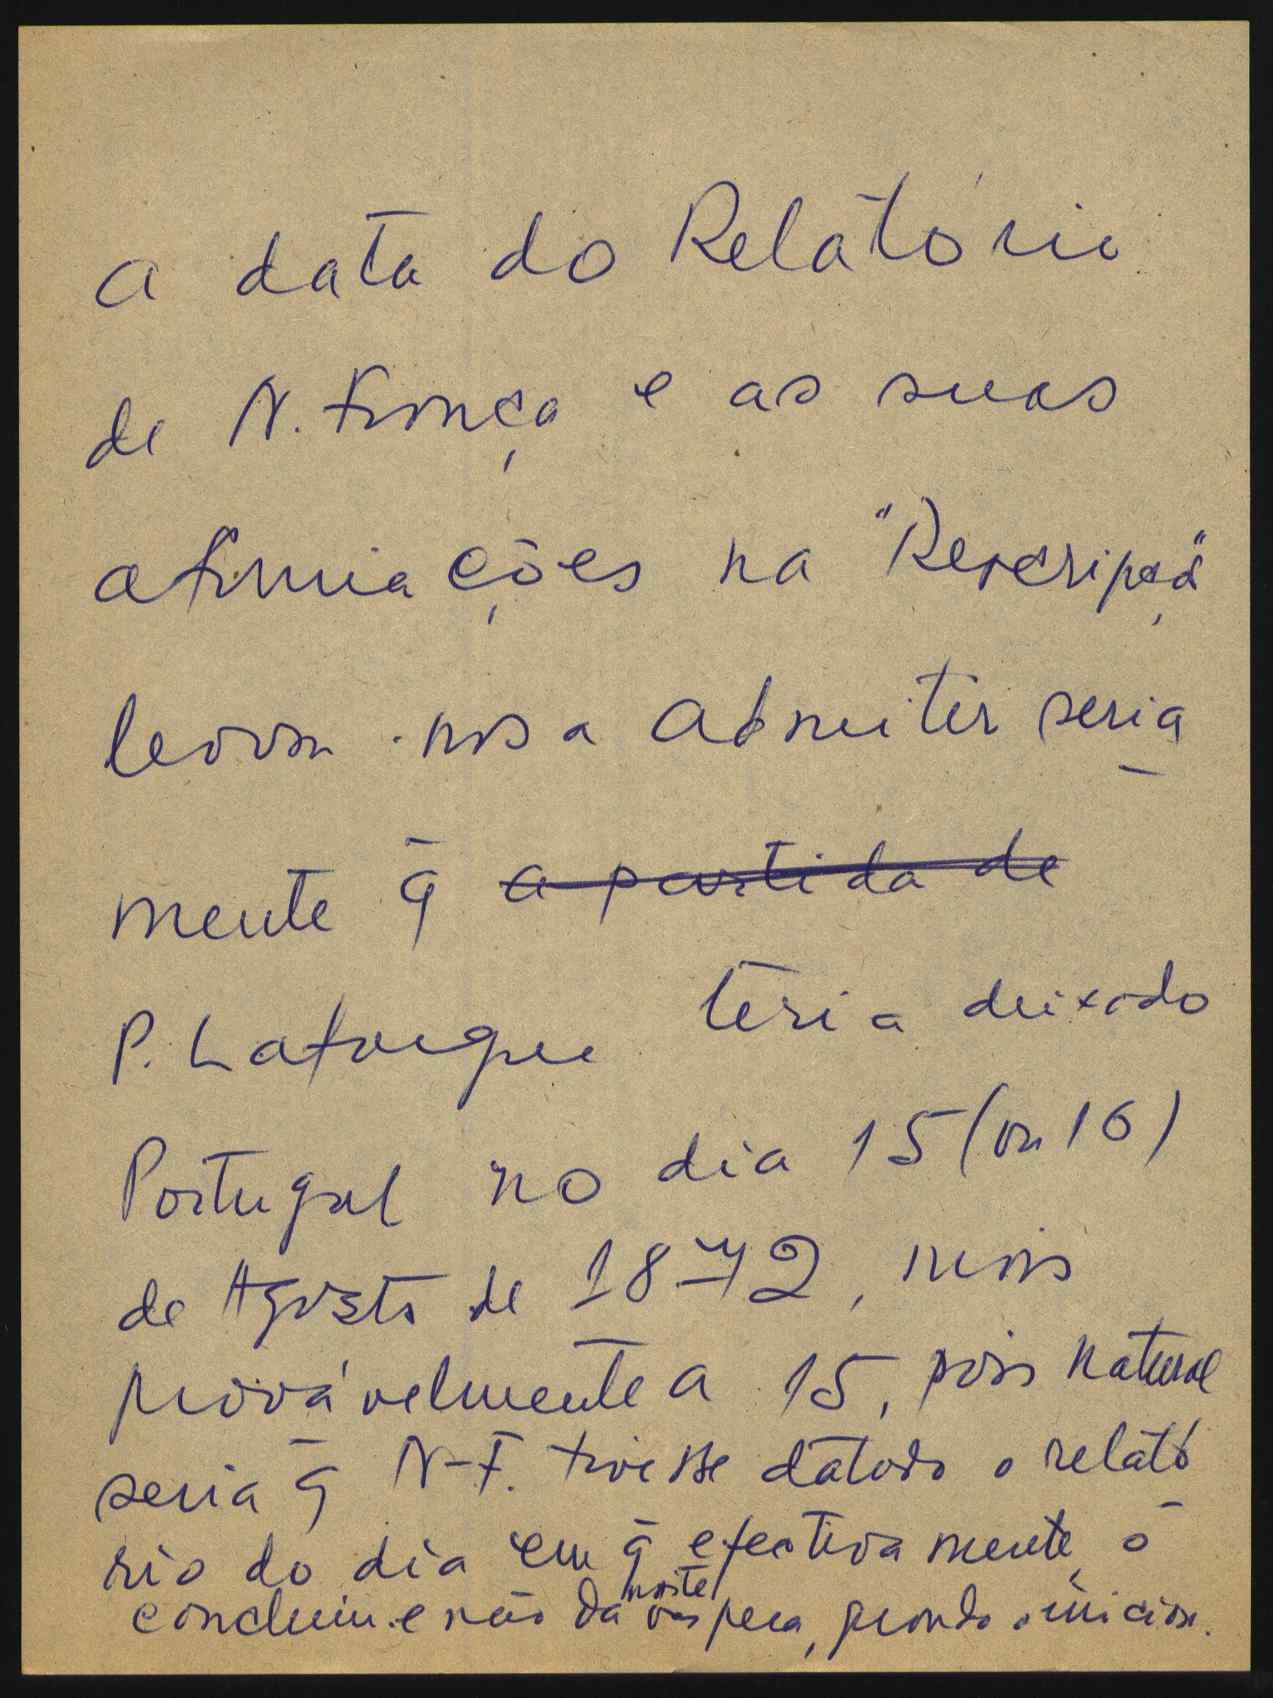 A data do Relatório
de N. França e as suas
afirmações na "Descripção"
levam-nos a admitir séria
mente q̄ a partida de
P. Lafargue teria deixado
Portugal no dia 15 (ou 16)
de Agosto de 1872, mais
provávelmente a 15, pois natural
seria q̄ N-F. tivesse datado o relató
rio do dia em q̄ efectivamente o
concluiu e não da noite véspera, quando o iniciou.